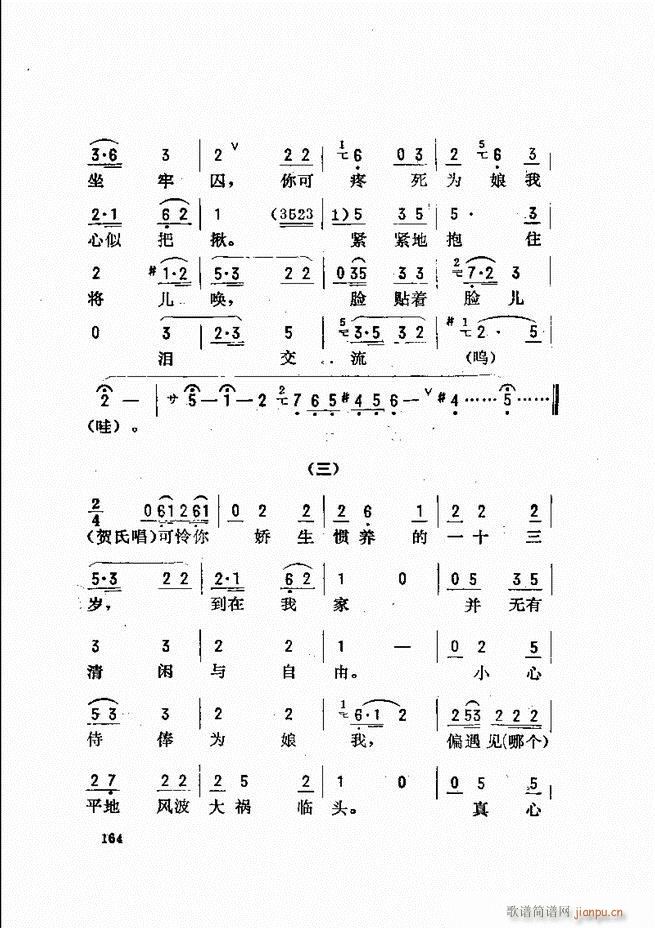 3·6 3 | 2 ∨ 2 2 | 1 6 0 3 | 2 5 6 3 |
坐 牢 囚，你可 疼 死为 娘我
2·1 6 2 | 1 (3523 | 1) 5 3 5 | 5 · 3 |
心似 把 揪。 紧 紧地 抱 住
2 #1·2 | 5·3 2 2 | 0 35 3 3 | 2 7·2 3 |
将 儿 唤， 脸 贴着 脸 儿
0 3 | 2·3 5 | 5 3·5 3 2 | #1 2· 5 |
泪 交 流 (呜)
2 — | サ 5—1—2 2 7 6 5 #4 5 6-- ∨ #4 …… 5 …… ‖
(哇)。
(三)
2/4 0 61 2 61 | 0 2 2 | 2 6 1 | 2 2 2 |
(贺氏唱)可怜你 娇 生 惯 养 的 一 十 三
5·3 2 2 | 2·1 6 2 | 1 0 | 0 5 3 5 |
岁， 到在 我 家 并 无有
3 3 | 2 2 | 1 — | 0 2 5 |
清 闲 与 自 由。 小 心
5 3 3 | 2 2 | 1 6·1 2 | 2 53 2 2 2 |
侍 俸 为 娘 我， 偏遇见(哪个)
2 7 2 2 | 2 5 5 | 1 0 | 0 5 5 |
平地 风波 大祸 临 头。 真 心
164
歌谱简谱网 jianpu.cn